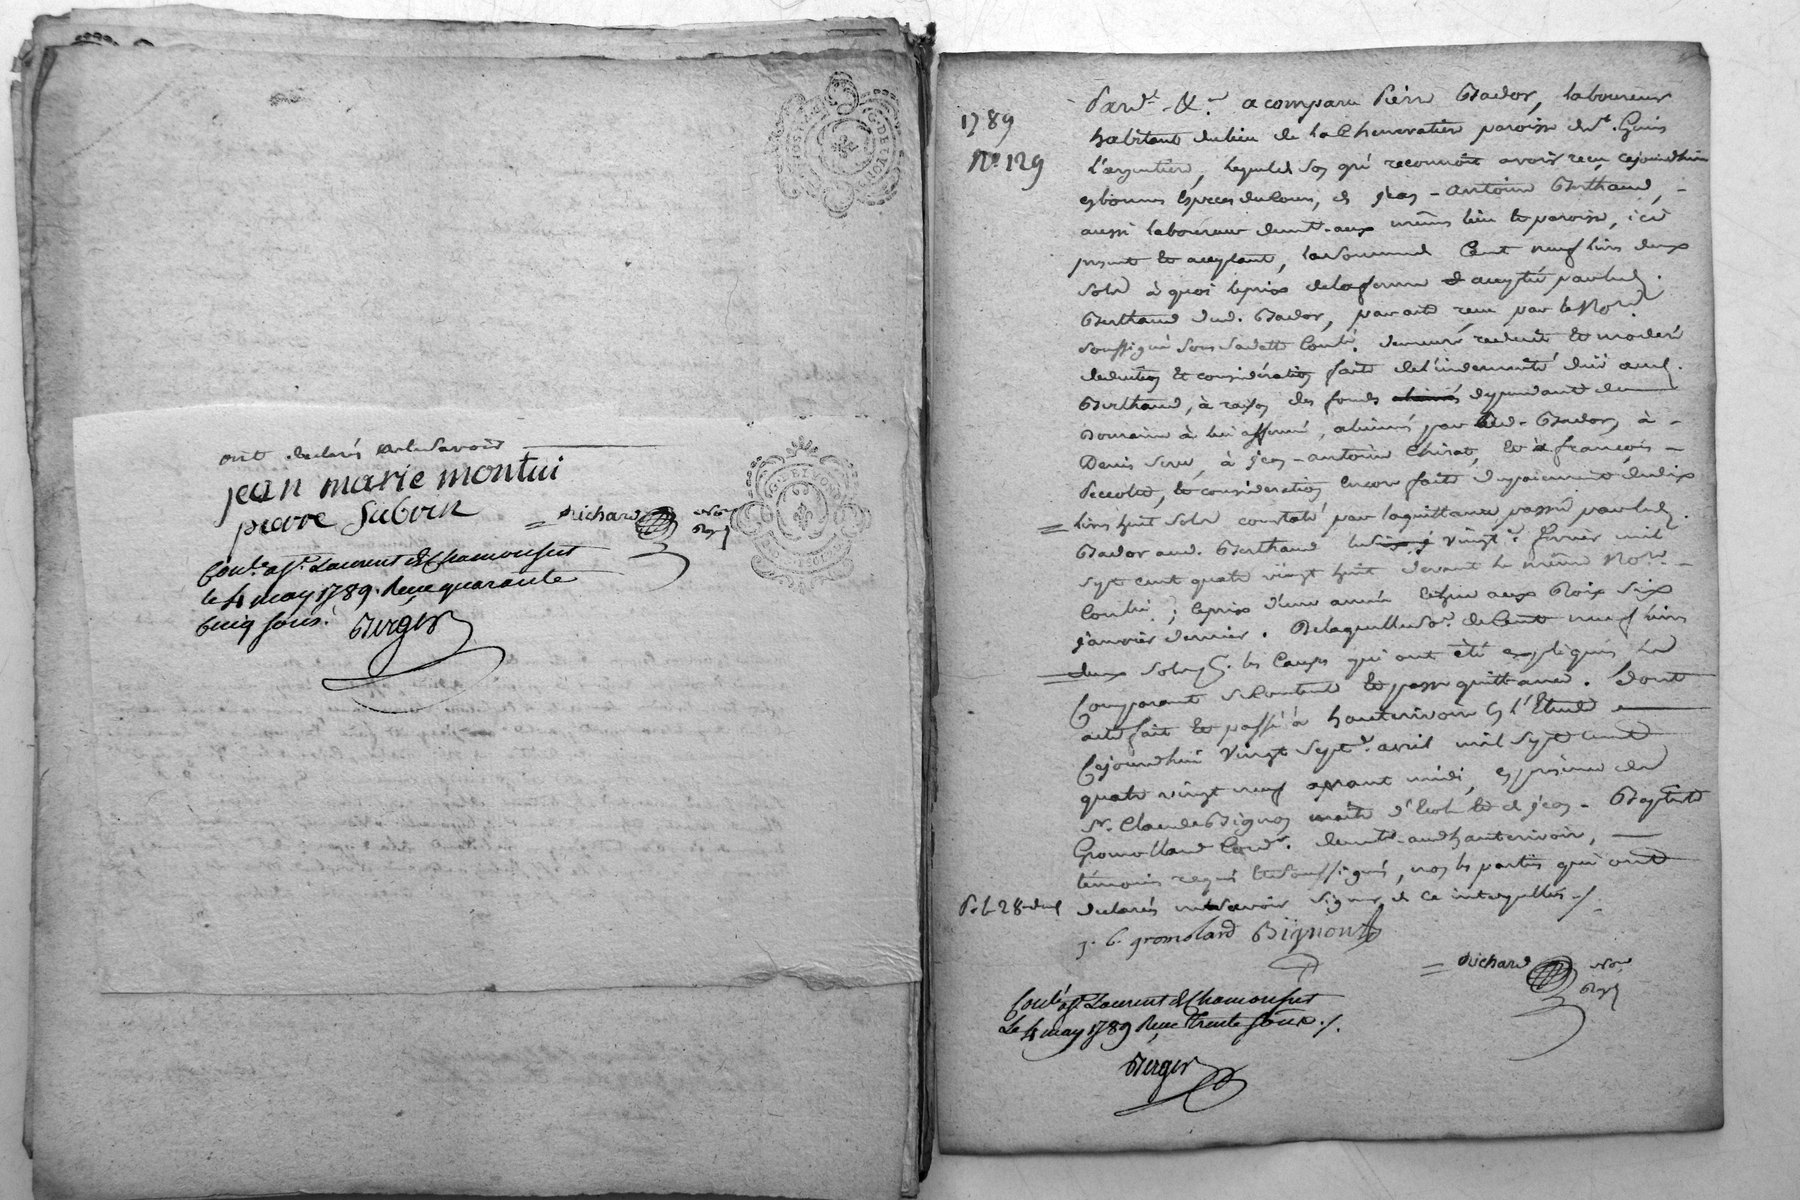 ont declaré ne le savoir
jean marie montui
pierre Subrin
Richard Nore
Roy.
Conlé a St. Laurent de Chamousset
le 4 may 1789. Reçu quarante
Cinq sous. Berger
1789
N° 129
Pard.t &.a a comparu Pierre Bador, laboureur
habitant du lieu de la Cheneratier paroisse de St. Genis
l'argentiere, lequel de son gré reconnoit avoir recu cejourdhui
en bonnes Especes du Cours, de jean-antoine Berthaud, -
aussi laboureur demt. aux même lieu et paroisse, ici
present et acceptant, la somme de Cent neuf livres deux
sols à quoi le prix de la ferme acceptée par led.
Berthaud dud. Bador, par acte reçu par le Nore.
soussigné sous sa datte Conlé. demeure reduit et moderé
deduction et considération faite de l'indemnité düe aud.
Berthaud, à raison des fonds dependant du
Domaine à lui affermé, alienés par led. Bador, à -
Denis, à jean-antoine Chirat, et à françois -
Piccolet, et consideration encore faite du paiement de dix
livres huit sols constaté par la quittance passée par led.
Bador aud. Berthaud le vingt. fevrier mil
sept cent quatre vingt huit devant le même Nore. -
Conlée; le prix d'une année echue aux Rois six
janvier dernier. De laquelle so.e de Cent neuf livres
deux sols p. les Causes qui ont été expliqués, led
Comparant se contente et passe quittance. Dont
acte fait et passé à hauterivoire en l'Etude
Cejourdhui vingt sept. avril mil sept cent
quatre vingt neuf avant midi, en présence de
Sr. Claude Bignon maitre d'Ecole et de jean-Baptiste
Gromolland Cord.r demt. aud hauterivoire,
témoins requis et soussignés, non les parties qui ont
declarés ne savoir signer de ce interpellées ./.
P.t 28 dud
j. b. gromolard Bignon
Richard Nore
Roy.
Conlé a St. Laurent de Chamousset
Le 4 may 1789 Reçu trente sous ./.
Berger